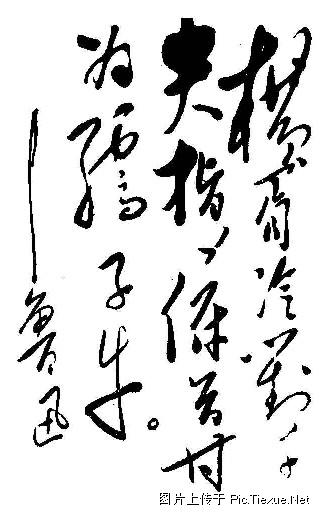 横眉冷對千
夫指，俯首甘
为孺子牛。
——鲁迅
图片上传于 Pic.Tiexue.Net